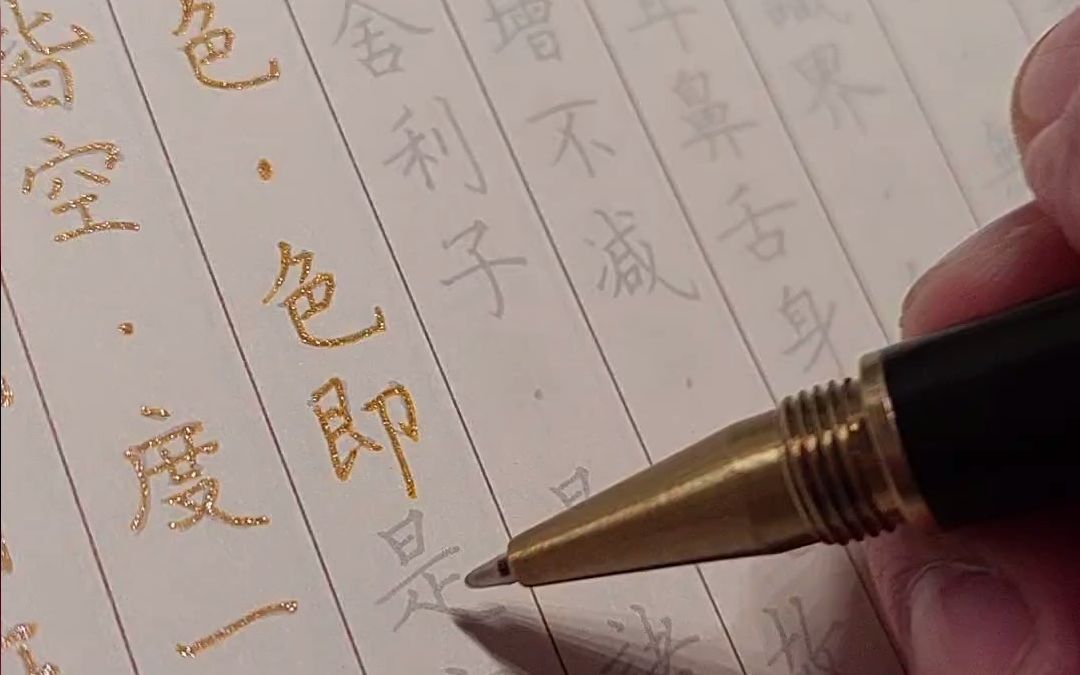 皆空·度一
色·色即是
舍利子·
增不減·
耳鼻舌身
界·